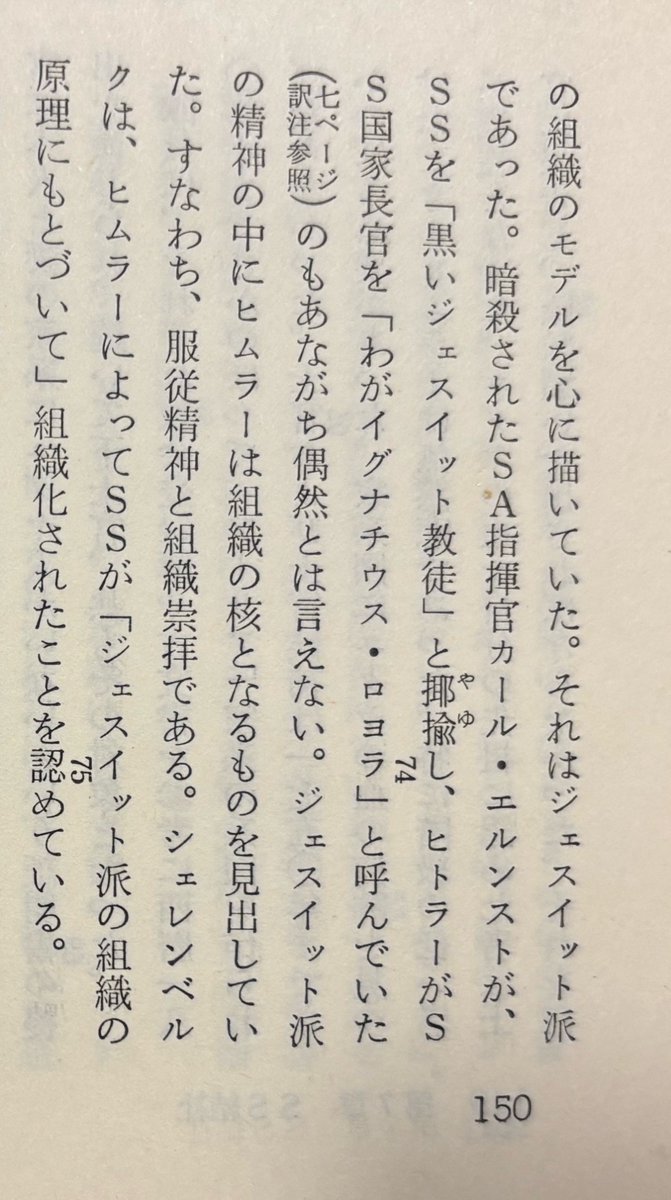 の組織のモデルを心に描いていた。それはジェスイット派
であった。暗殺されたSA指揮官カール・エルンストが、
SSを「黒いジェスイット教徒」と揶揄し、ヒトラーがS
やゆ
S国家長官を「わがイグナチウス・ロヨラ」と呼んでいた
74
(七ページ訳注参照)のもあながち偶然とは言えない。ジェスイット派
の精神の中にヒムラーは組織の核となるものを見出してい
た。すなわち、服従精神と組織崇拝である。シェレンベル
クは、ヒムラーによってSSが「ジェスイット派の組織の
75
原理にもとづいて」組織化されたことを認めている。
150